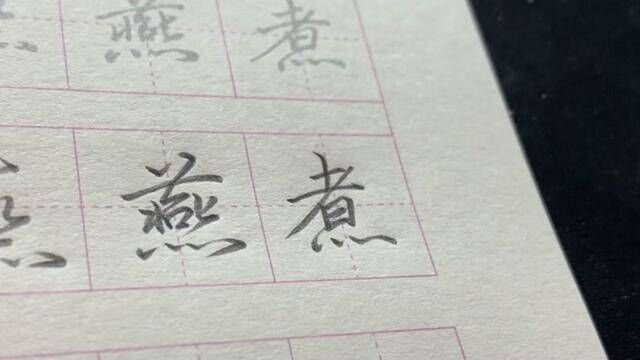 燕煮
燕煮